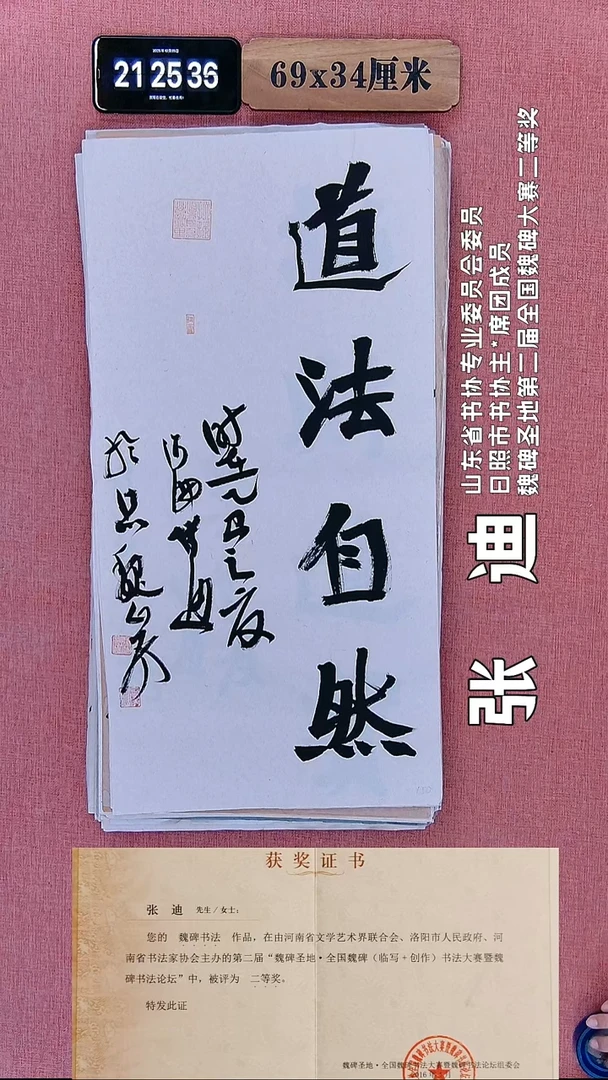 21 25 36
69x34厘米
道法自然
山东省书协专业委员会委员
日照市书协主*席团成员
魏碑圣地第二届全国魏碑大赛二等奖
张 迪
获奖证书
张 迪 先生/女士:
您的 魏碑书法 作品,在由河南省文学艺术界联合会、洛阳市人民政府、河
南省书法家协会主办的第二届“魏碑圣地·全国魏碑(临写+创作)书法大赛暨魏
碑书法论坛”中,被评为 二等奖。
特发此证
魏碑圣地·全国魏碑书法大赛暨魏碑书法论坛组委会